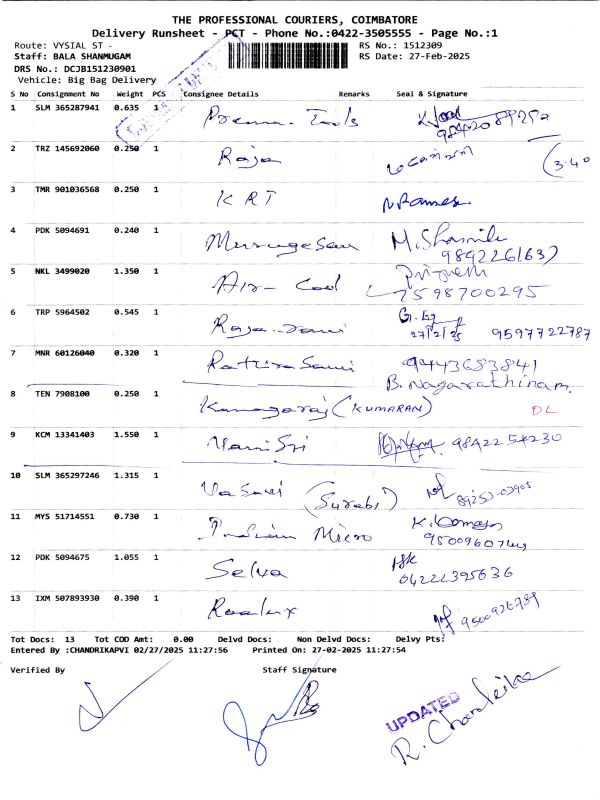 THE PROFESSIONAL COURIERS, COIMBATORE
Delivery Runsheet - PCT - Phone No.:0422-3505555 - Page No.:1
Route: VYSIAL ST -
RS No.: 1512309
Staff: BALA SHANMUGAM
RS Date: 27-Feb-2025
DRS No.: DCJB151230901
Vehicle: Big Bag Delivery
S No Consignment No Weight PCS Consignee Details Remarks Seal & Signature
1 SLM 365287941 0.635 1 Prema Tools
2 TRZ 145692060 0.250 1 Raja (3.40
3 TMR 901036568 0.250 1 KRT N Ramesh
4 PDK 5094691 0.240 1 Murugesan M. Sharmila
9892261637
5 NKL 3499020 1.350 1 Air-Cool
7598700295
6 TRP 5964502 0.545 1 Raja-Sami
27/2/25 9597722787
7 MNR 60126040 0.320 1 Rathinasami 9443683841
B. Nagarathinam
8 TEN 7908100 0.250 1 Kanagaraj (KUMARAN) DL
9 KCM 13341403 1.550 1 Vani Sri 9842254230
10 SLM 365297246 1.315 1 Vasavi (Surabi)
11 MYS 51714551 0.730 1 Indian Micro
12 PDK 5094675 1.055 1 Selva
04222395636
13 IXM 507893930 0.390 1
Tot Docs: 13 Tot COD Amt: 0.00 Delvd Docs: Non Delvd Docs: Delvy Pts:
Entered By :CHANDRIKAPVI 02/27/2025 11:27:56 Printed On: 27-02-2025 11:27:54
Verified By Staff Signature
UPDATED
R. Chandrika